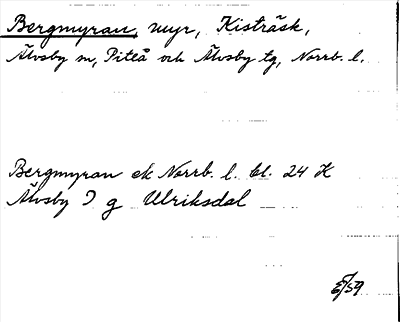 Bergmyran, myr, Kisträsk,
Älvsby sn, Piteå och Älvsby tg, Norrb. l.
Bergmyran ek Norrb. l. bl. 24 K
Älvsby I g Ulriksdal
E/59